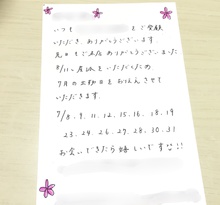 いつも をご愛顧
いただき、ありがとうございます。
先日もご来店ありがとうございました。
8/11〜産休をいただくため
7月の出勤日をお伝えさせて
いただきます。
7/8.9.11.12.15.16.18.19
23.24.26.27.28.30.31
お会いできたら嬉しいです!!